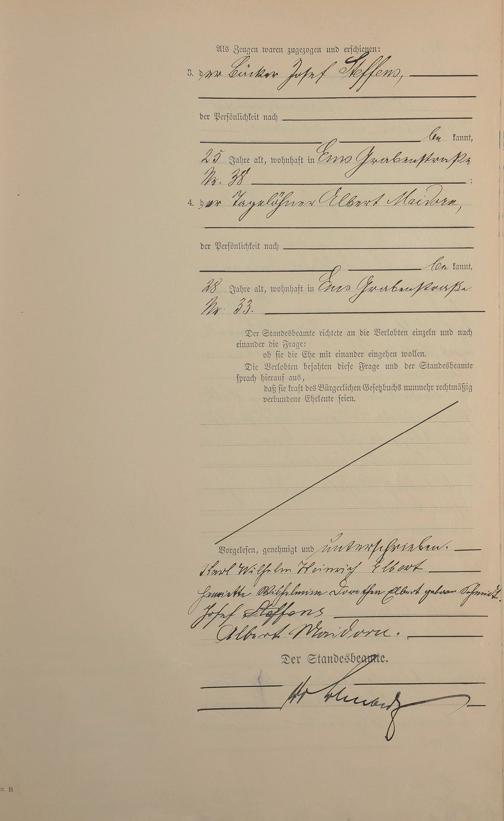 Als Zeugen waren zugezogen und erschienen:
3. der Bäcker Josef Steffens,
der Persönlichkeit nach
be kannt,
25 Jahre alt, wohnhaft in Ems Grabenstraße
Nr. 38 ;
4. der Tagelöhner Albert Maidorn,
der Persönlichkeit nach
be kannt,
28 Jahre alt, wohnhaft in Ems Grabenstraße
Nr. 33.
Der Standesbeamte richtete an die Verlobten einzeln und nach
einander die Frage:
ob sie die Ehe mit einander eingehen wollen.
Die Verlobten bejahten diese Frage und der Standesbeamte
sprach hierauf aus,
daß sie kraft des Bürgerlichen Gesetzbuchs nunmehr rechtmäßig
verbundene Eheleute seien.
Vorgelesen, genehmigt und unterschrieben.
Karl Wilhelm Heinrich Elbert
Henriette Wilhelmine Dorothea Elbert geborene Schmidt.
Josef Steffens
Albert Maidorn.
Der Standesbeamte.
B